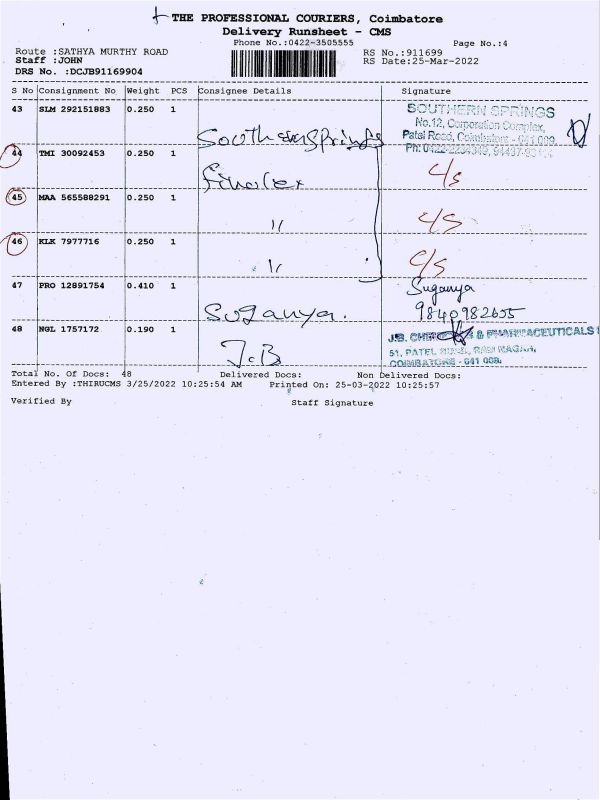 THE PROFESSIONAL COURIERS, Coimbatore
Delivery Runsheet - CMS
Phone No.:0422-3505555
Page No.:4
Route :SATHYA MURTHY ROAD
RS No.:911699
Staff :JOHN
RS Date:25-Mar-2022
DRS No. :DCJB91169904
S No Consignment No Weight PCS Consignee Details Signature
43 SLM 292151883 0.250 1 Southernsprings
SOUTHERN SPRINGS
No.12, Corporation Complex,
Patel Road, Coimbatore - 641 009.
44 TMI 30092453 0.250 1 Finolex C/S
45 MAA 565588291 0.250 1 " C/S
46 KLK 7977716 0.250 1 " C/S
47 PRO 12891754 0.410 1 Suganya. Suganya
9840982655
48 NGL 1757172 0.190 1 J.B
J.B. & PHARMACEUTICALS
51, PATEL ROAD, RAM NAGAR,
COIMBATORE - 641 009.
Total No. Of Docs: 48 Delivered Docs: Non Delivered Docs:
Entered By :THIRUCMS 3/25/2022 10:25:54 AM Printed On: 25-03-2022 10:25:57
Verified By Staff Signature